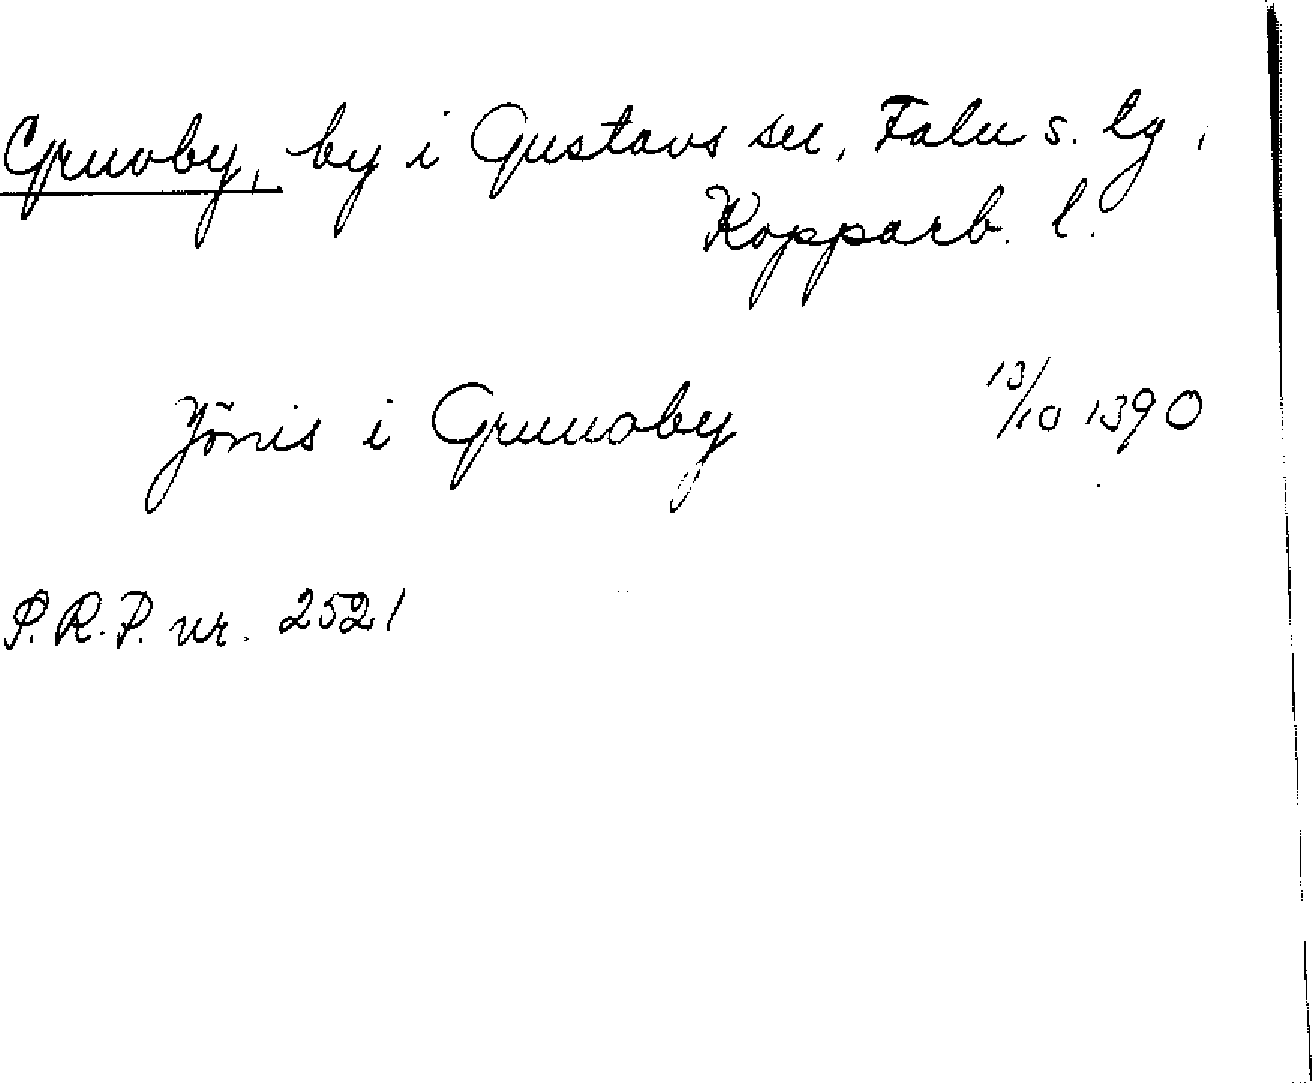 Gruvby, by i Gustavs sn, Falu s. tg,
Kopparb. l.
Jönis i Gruuoby 13/10 1390
P.R.P. nr. 2521